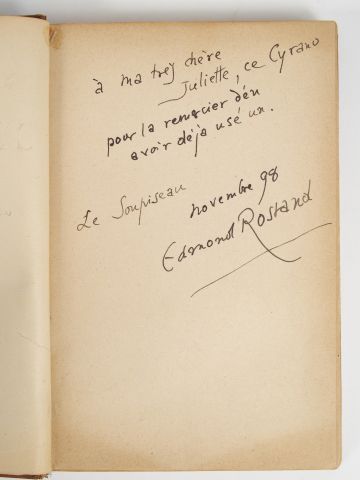 à ma très chère
Juliette, ce Cyrano
pour la remercier d'en
avoir déjà usé un.
Le Soupiseau
novembre 98
Edmond Rostand